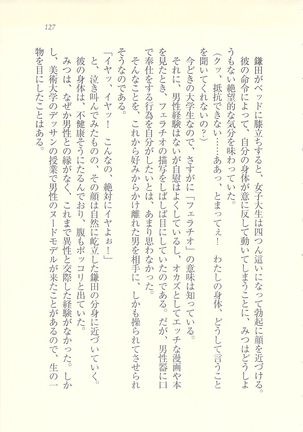 127
鎌田がベッドに膝立ちすると、女子大生は四つん這いになって勃起に顔を近づける。
彼の命令によって、自分の身体が意に反して動いてしまうことに、みつはどうしよ
うもない絶望的な気分を味わっていた。
(クッ、抵抗できない……ああっ、とまってぇ! わたしの身体、どうして言うこと
を聞いてくれないの?)
今どきの大学生なので、さすがに「フェラチオ」の意味は知っている。
それに、男性経験はないが自慰はよくしているし、オカズとしてエッチな漫画や本
を見たとき、フェラチオの描写をしばしば目にしていたのである。だが、男性器に口
で奉仕をする行為を自分がしたいとは、あまり思わなかった。
そんなことを、これから好みからかけ離れた男を相手に、しかも操られてさせられ
そうなのである。
「イヤッ、イヤッ! こんなの、絶対にイヤよぉ!」
と、泣き叫んでみたものの、その顔は自然に屹立した鎌田の分身に近づいていく。
彼の身体は、不健康そうにたるんでおり、腹もポッコリと出ていた。
みつは、なぜか男性との縁がなく、これまで異性と交際した経験がなかった。しか
し、美術大学のデッサンの授業で男性のヌードモデルが来たことがあるので、生の一
物を目にしたことはある。